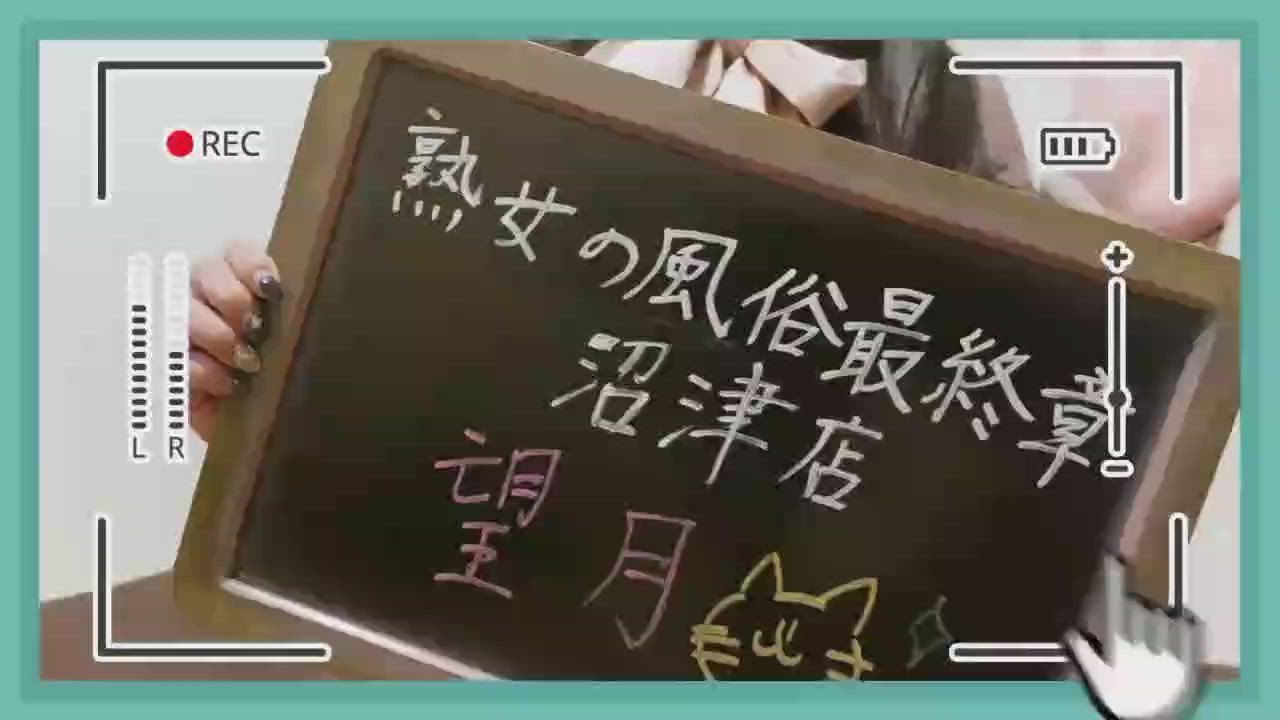 REC
熟女の風俗最終章
沼津店
望月
L R